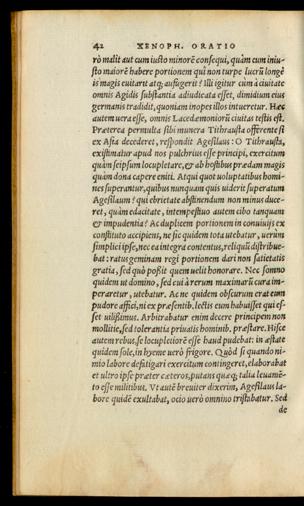 42 XENOPH. ORATIO
rò malit aut cum iusto minorē consequi, quàm cum iniu-
sto maiorē habere portionem qui non turpe lucrū longè
is magis euitarit atq; aufugerit? Illi igitur cùm à ciuitate
omnis Agidis substantia adiudicata esset, dimidium eius
germanis tradidit, quoniam inopes illos intueretur. Hæc
autem uera esse, omnis Lacedæmoniorū ciuitas testis est.
Præterea permulta sibi munera Tithrausta offerente si
ex Asia decederet, respondit Agesilaus: O Tithrausta,
existimatur apud nos pulchrius esse principi, exercitum
quàm seipsum locupletare, & ab hostibus prædam magis
quàm dona capere eniti. Atqui quot uoluptatibus homi-
nes superantur, quibus nunquam quis uiderit superatum
Agesilaum? qui ebrietate abstinendum non minus duce-
ret, quàm edacitate, intempestiuo autem cibo tanquam
& impudentia? Ac duplicem portionem in conuiuijs ex
constituto accipiens, ne sic quidem tota utebatur, uerùm
simplici ipse, nec ea integra contentus, reliquū distribue-
bat: ratus geminam regi portionem dari non satietatis
gratia, sed quò possit quem uelit honorare. Nec somno
quidem ut domino, sed cui à rerum maximarū cura im-
peraretur, utebatur. Ac ne quidem obscurum erat eum
pudore affici, ni ex præsentib. lectis eum habuisset qui es-
set uilissimus. Arbitrabatur enim decere principem non
mollitie, sed tolerantia priuatis hominib. præstare. Hisce
autem rebus, se locupletiorē esse haud pudebat: in æstate
quidem sole, in hyeme uerò frigore. Quòd si quando ni-
mio labore defatigari exercitum contingeret, elaborabat
et ultro ipse præter cæteros, putans quæq; talia leuamē-
to esse militibus. Vt autē breuiter dixerim, Agesilaus la-
bore quidē exultabat, ocio uerò omnino tristabatur. Sed
de